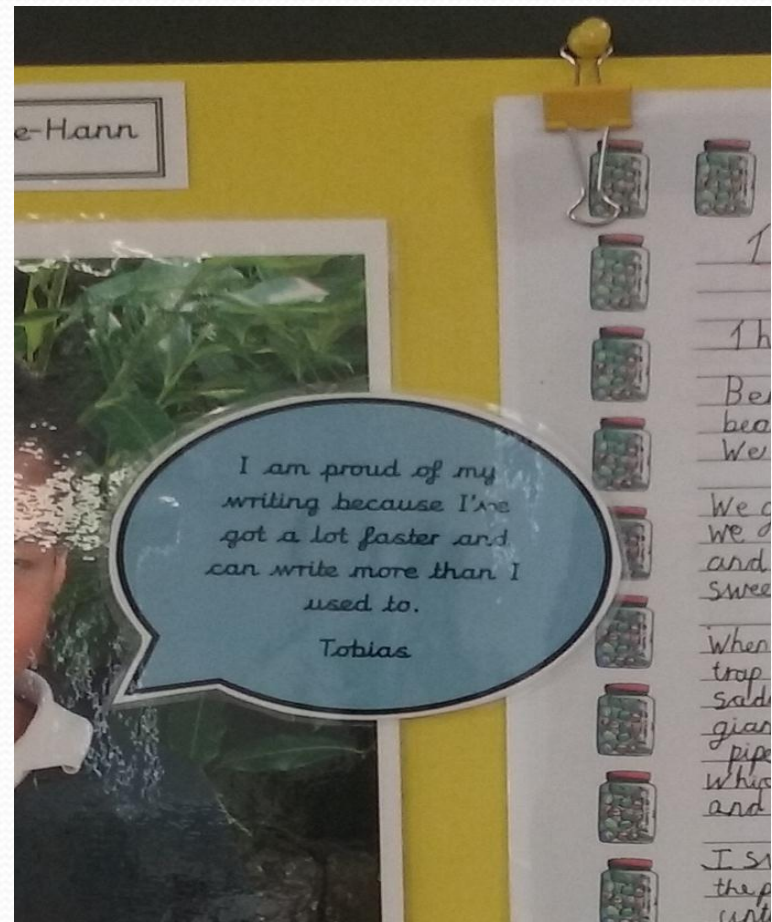 e-Hann
I am proud of my
writing because I've
got a lot faster and
can write more than I
used to.
Tobias
Th
Be
bea
We
We
we
and
swee
When
trap
sad
gian
pipe
whic
and
I
the p
unt